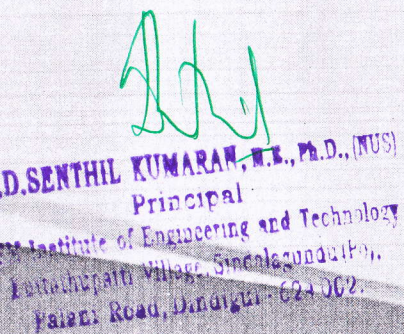 .D.SENTHIL KUMARAN, M.E., Ph.D., (NUS)
Principal
Institute of Engineering and Technology
Village, Sindalagundu (Po),
Palani Road, Dindigul - 624 002.